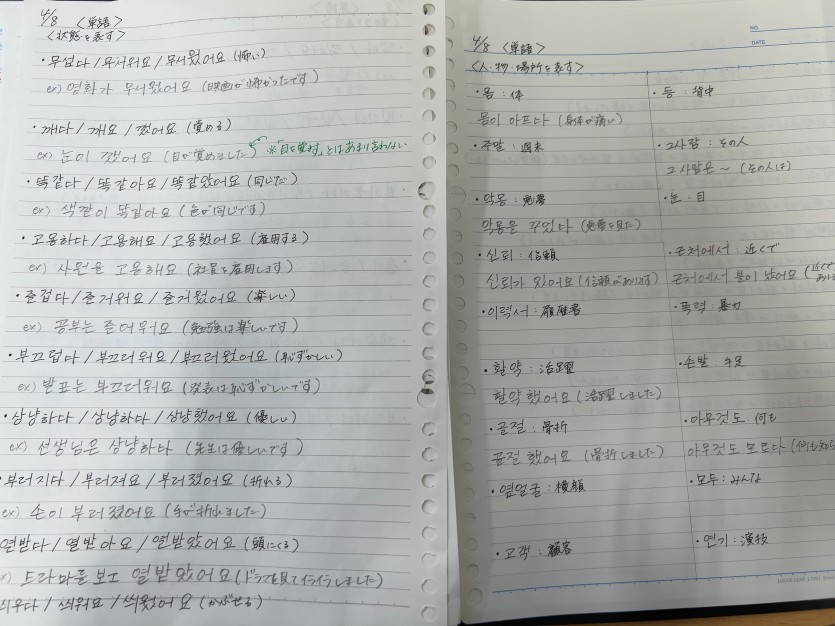 4/8 <単語>
<状態を表す>
・무섭다 / 무서워요 / 무서웠어요 (怖い)
ex) 영화가 무서웠어요 (映画が怖かったです)
・깨다 / 깨요 / 깼어요 (覚める)
ex) 눈이 깼어요 (目が覚めました) ※「目を覚ます」とはあまり言わない
・똑같다 / 똑같아요 / 똑같았어요 (同じだ)
ex) 색깔이 똑같아요 (色が同じです)
・고용하다 / 고용해요 / 고용했어요 (雇用する)
ex) 사원을 고용해요 (社員を雇用します)
・즐겁다 / 즐거워요 / 즐거웠어요 (楽しい)
ex) 공부는 즐거워요 (勉強は楽しいです)
・부끄럽다 / 부끄러워요 / 부끄러웠어요 (恥ずかしい)
ex) 발표는 부끄러워요 (発表は恥ずかしいです)
・상냥하다 / 상냥하다 / 상냥했어요 (優しい)
ex) 선생님은 상냥하다 (先生は優しいです)
・부러지다 / 부러져요 / 부러졌어요 (折れる)
ex) 손이 부러졌어요 (手が折れました)
열받다 / 열받아요 / 열받았어요 (頭にくる)
드라마를 보고 열받았어요 (ドラマを見てイライラしました)
씌우다 / 씌워요 / 씌웠어요 (かぶせる)
NO.
DATE
4/8 <単語>
<人・物・場所を表す>
・몸 : 体
몸이 아프다 (身体が痛い)
・주말 : 週末
・악몽 : 悪夢
악몽을 꾸었다 (悪夢を見た)
・신뢰 : 信頼
신뢰가 있어요 (信頼があります)
・이력서 : 履歴書
・활약 : 活躍
활약했어요 (活躍しました)
・골절 : 骨折
골절했어요 (骨折しました)
・옆얼굴 : 横顔
・고객 : 顧客
・등 : 背中
・그사람 : その人
그사람은~ (その人は)
・눈 : 目
・근처에서 : 近くで
근처에서 불이 났어요 (近くで
・폭력 : 暴力
・손발 : 手足
・아무것도 : 何も
아무것도 모르다 (何も知ら
・모두 : みんな
・연기 : 演技